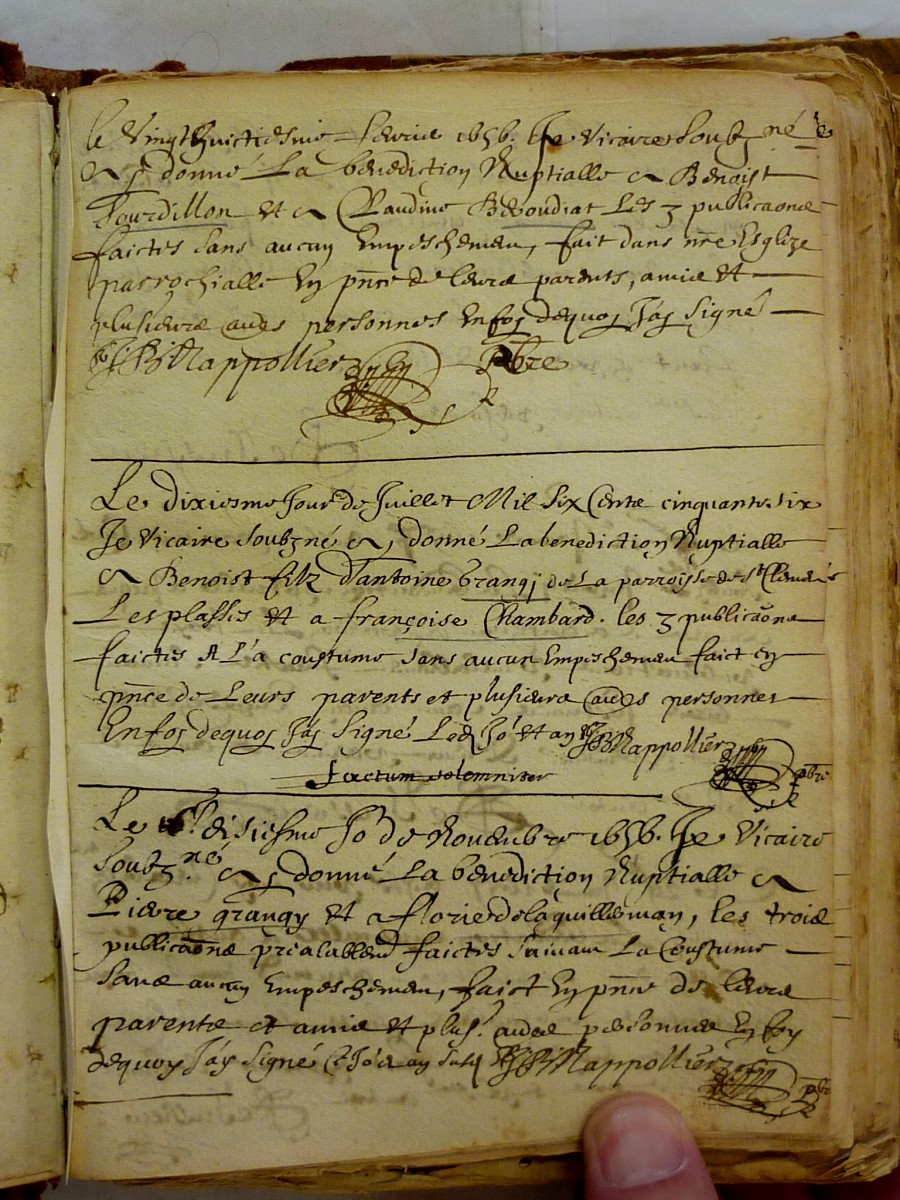 le Vingthuictiesme febvrier 1656. Je Vicaire soubzné
ay donné La benediction Nuptialle a Benoist
Tourdillon et a Claudine Beroudiat Les 3 publicaõns
faictes sans aucun Empeschemen, fait dans nre Esglize
parrochialle En pnce de leurs parents, amis et
plusieurs aues personnes En foy dequoy J'ay Signé
Mappollier Pbre
Le dixiesme Jour de Juillet Mil Six Cents cinquante six
Je Vicaire soubzné ay donné La benediction Nuptialle
a Benoist filz d'antoine Grangj de La parroisse de st
Les plasses et a françoise Chambard. les 3 publicaõns
faictes A L'a coustume sans aucun Empeschemen faict en
pnce de Leurs parents et plusieurs aues personnes
En foy dequoy J'ay Signé Led Jor et an Mappollier pbr
factum solemniter
Le disiesme Jor de Novembre 1656. Je Vicaire
soubzné ay donné La benediction Nuptialle a
Pierre grangy et a florie delaquilleman, les trois
publicaõns prealablemt faictes suivam La Coustume
sans aucun Empeschemen, faict En pnce de leurs
parents et amis et plus. autres personnes En foy
dequoy J'ay Signé Mappollier pbr